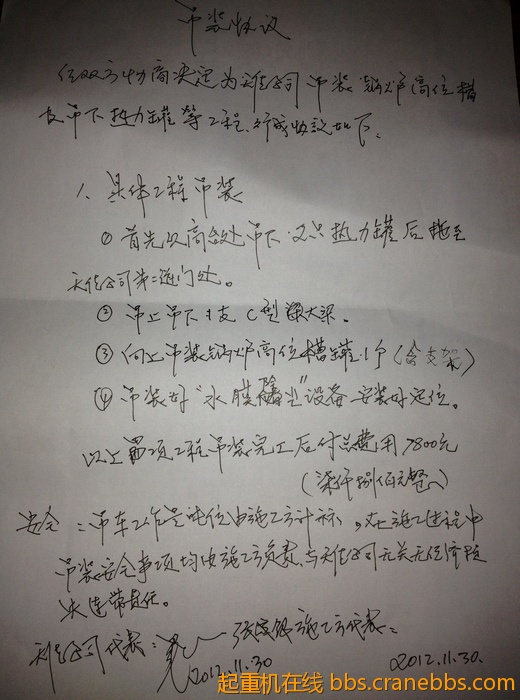 吊装协议
经双方协商决定为天位公司吊装锅炉高位槽
及吊下热力罐等工程,形成协议如下:
1、具体工程吊装
① 首先从高处吊下2只热力罐后拖至
公司第二道门处。
② 吊上吊下1支C型钢大梁。
③ 向上吊装锅炉高位槽罐1个(含支架)
④ 吊装好“水膜除尘”设备安装好定位。
以上四项工程吊装完工后付总费用7800元
(柒仟捌佰元整)
安全:吊车工作吨位由施工方计标,在施工过程中
吊装安全事项均由施工方负责,与公司无关无经济
连带责任。
公司代表: 施工方代表:
2012.11.30 2012.11.30.
起重机在线 bbs.cranebbs.com